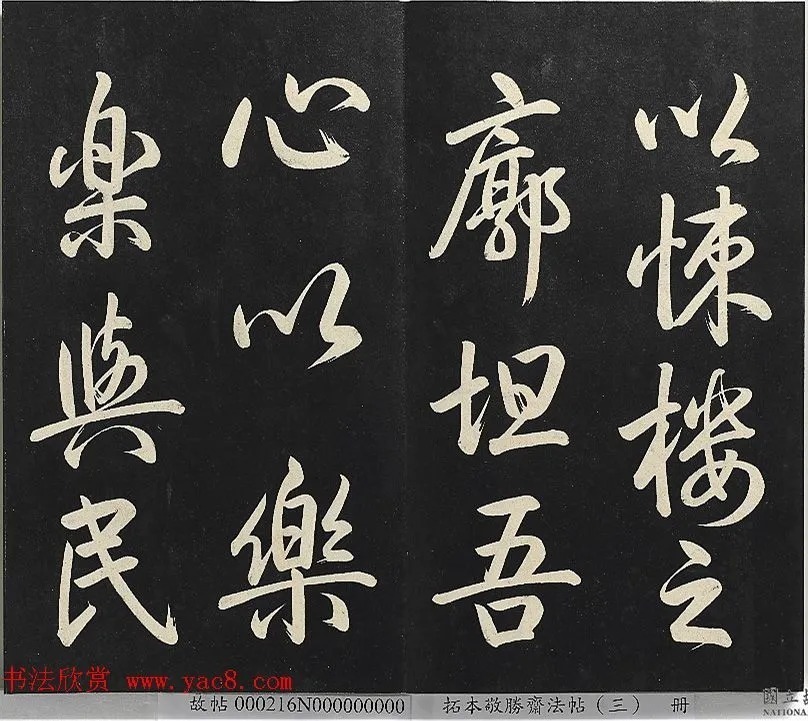 以悚樓之
廓坦吾
心以樂
樂與民
书法欣赏 www.yac8.com
故帖000216N000000000
拓本敬勝齋法帖(三) 册
國立
NATIONA